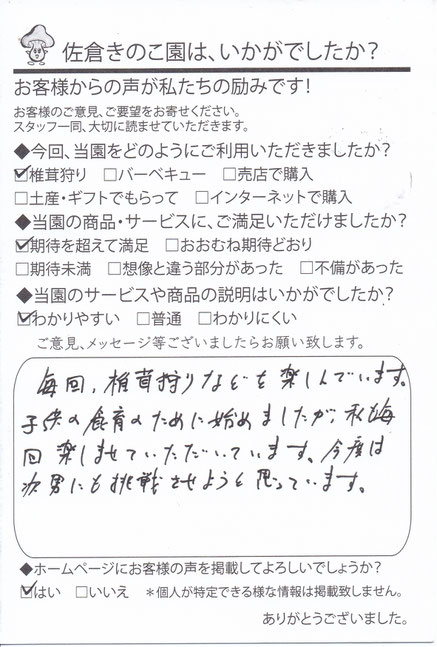 佐倉きのこ園は、いかがでしたか?
お客様からの声が私たちの励みです!
お客様のご意見、ご要望をお寄せください。
スタッフ一同、大切に読ませていただきます。
◆今回、当園をどのようにご利用いただきましたか?
☑椎茸狩り □バーベキュー □売店で購入
□土産・ギフトでもらって □インターネットで購入
◆当園の商品・サービスに、ご満足いただけましたか?
☑期待を超えて満足 □おおむね期待どおり
□期待未満 □想像と違う部分があった □不備があった
◆当園のサービスや商品の説明はいかがでしたか?
☑わかりやすい □普通 □わかりにくい
ご意見、メッセージ等ございましたらお願い致します。
毎回、椎茸狩りなどを楽しんでいます。
子供の食育のために始めましたが、私も毎
回楽しませていただいています。今度は
次男にも挑戦させようと思っています。
◆ホームページにお客様の声を掲載してよろしいでしょうか?
☑はい □いいえ *個人が特定できる様な情報は掲載致しません。
ありがとうございました。